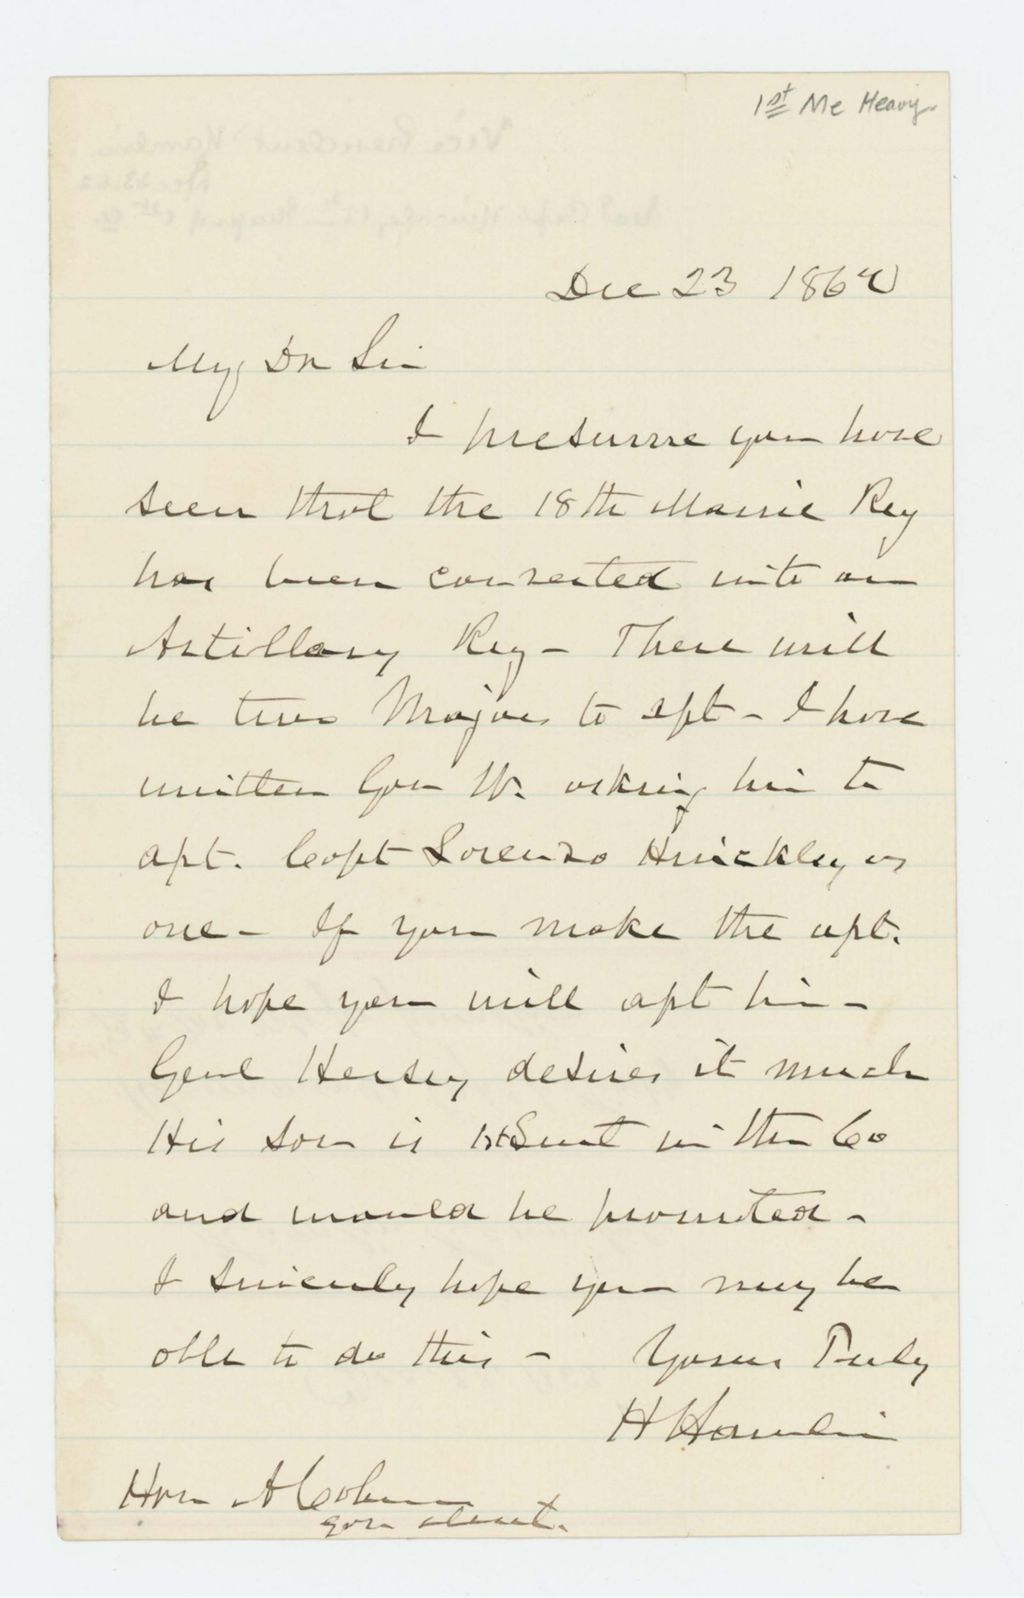 1st Me Heavy.
Dec 23 1862
My Dr Sir
I presume you have
seen that the 18th Maine Reg
has been converted into an
Artillery Reg - There will
be two Majors to apt - I have
written Gov W. asking him to
apt. Capt Lorenzo Hinckley as
one - If you make the apt.
I hope you will apt him -
Genl Hersey desires it much
His son is 1st Lieut in the Co
and would be promoted -
I sincerely hope you may be
able to do this - Yours Truly
H Hamlin
Hon A Coburn
Gov elect.